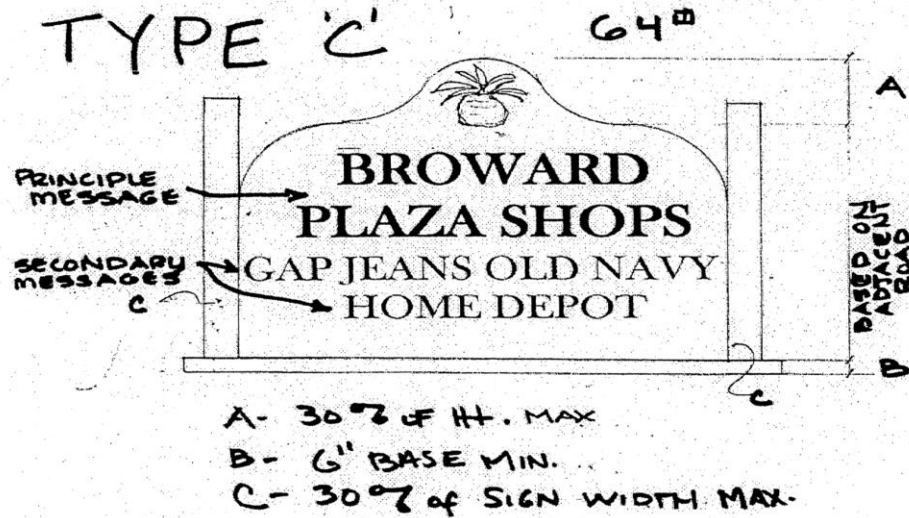 TYPE 'C'
64⌗
A
PRINCIPLE
MESSAGE
BROWARD
PLAZA SHOPS
SECONDARY
MESSAGES
GAP JEANS OLD NAVY
HOME DEPOT
C
BASED ON
ADJACENT
ROAD
B
C
A- 30% OF HT. MAX
B- 6" BASE MIN.
C- 30% of SIGN WIDTH MAX.